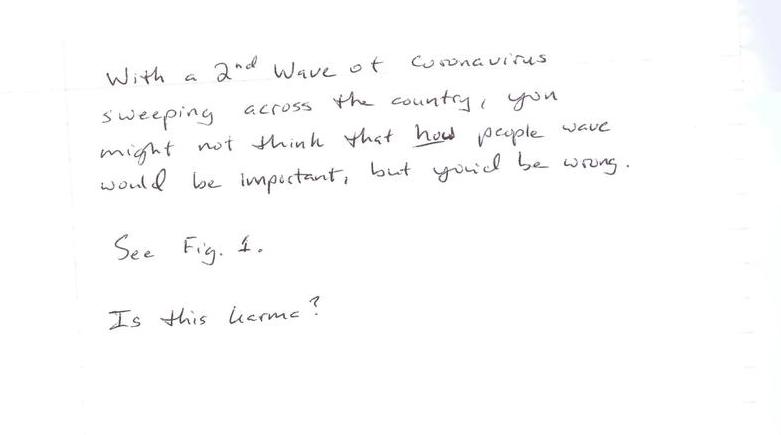 With a 2nd Wave of Coronavirus
sweeping across the country, you
might not think that how people wave
would be important, but you'd be wrong.
See Fig. 1.
Is this karma?